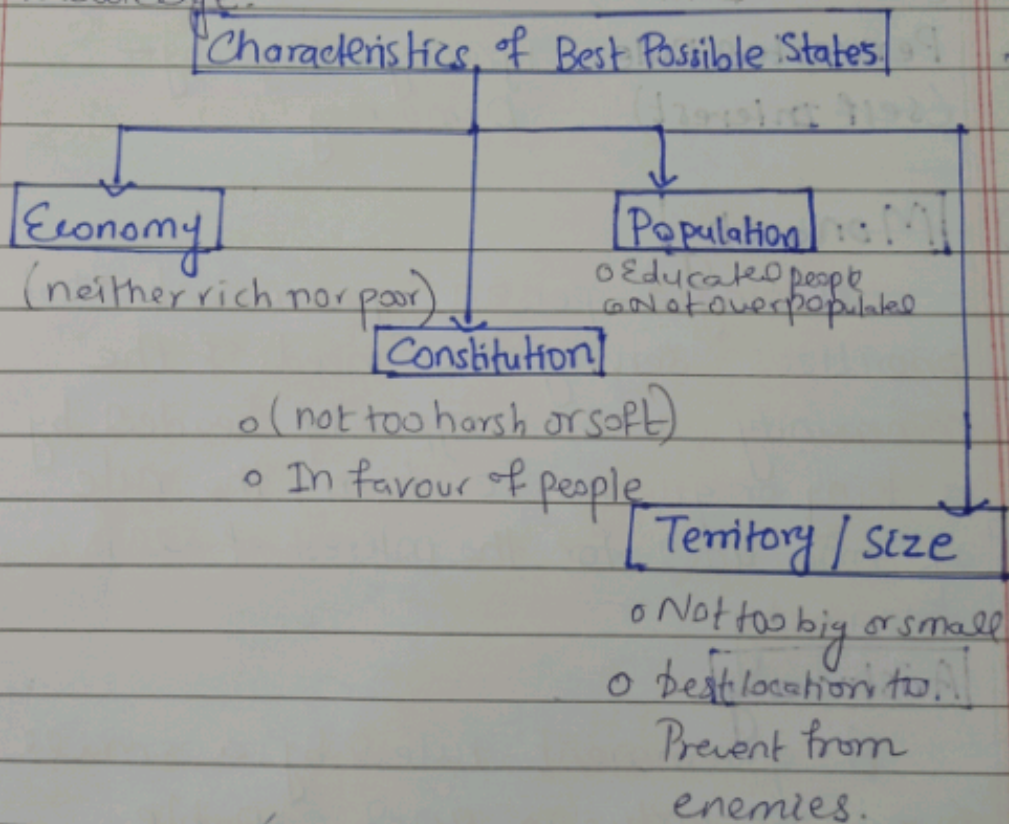 Characteristics of Best Possible States
Economy
(neither rich nor poor)
Population
o Educated people
o Not overpopulated
Constitution
o (not too harsh or soft)
o In favour of people
Territory / Size
o Not too big or small
o best location to.
Prevent from
enemies.